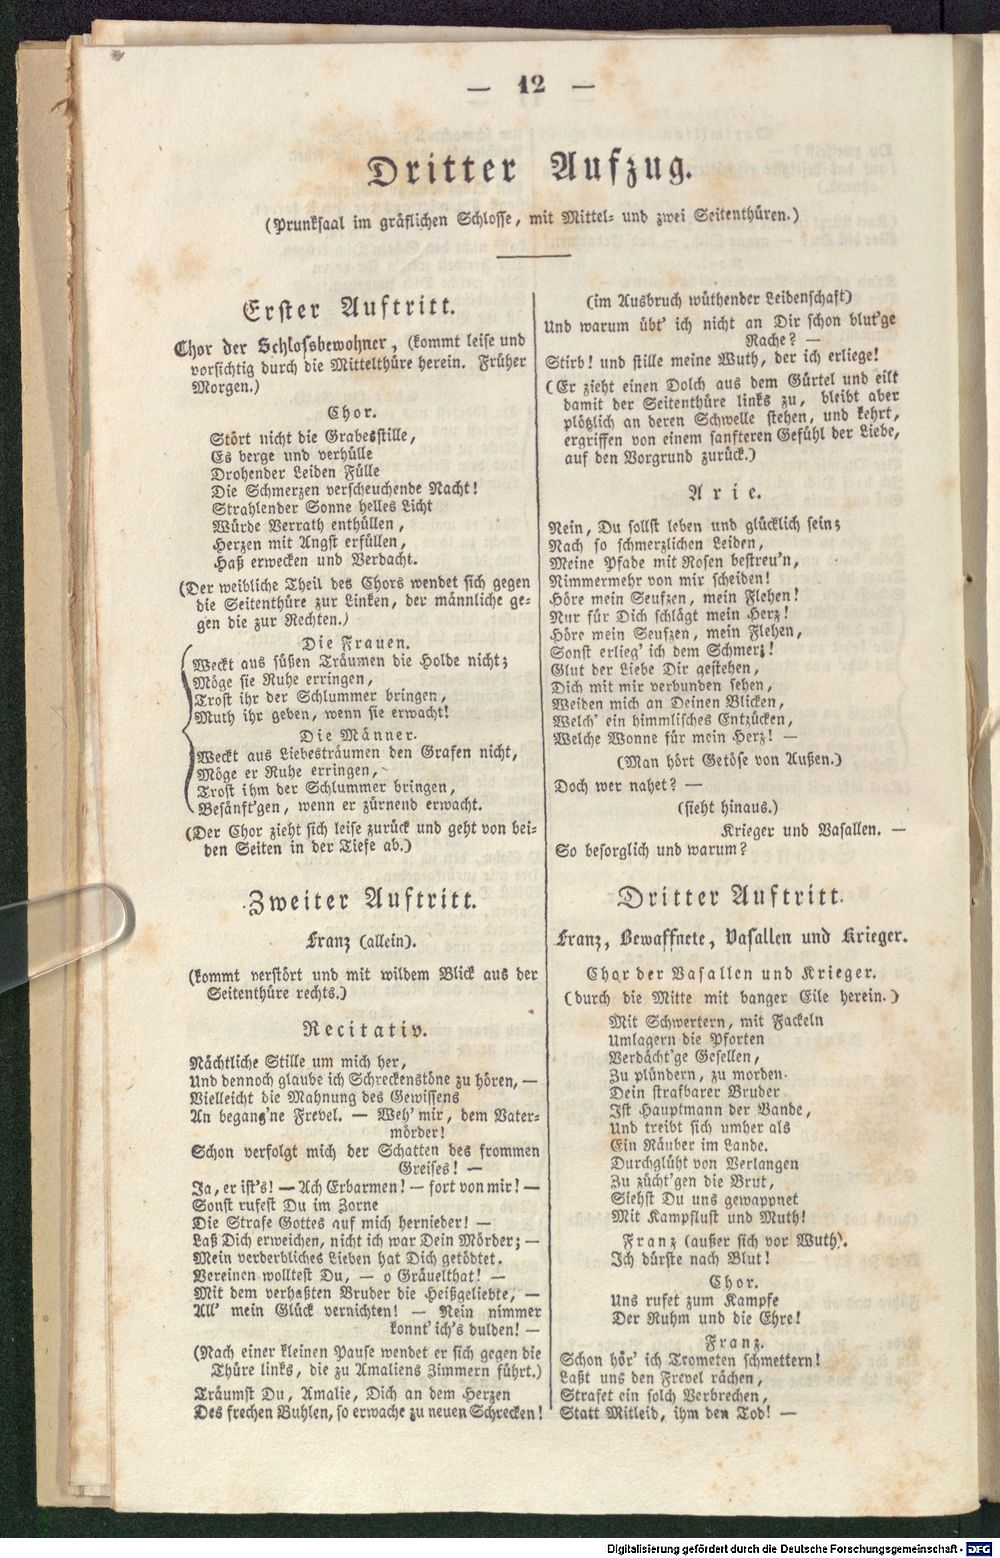 — 12 —
Dritter Aufzug.
(Prunksaal im gräflichen Schlosse, mit Mittel- und zwei Seitenthüren.)
Erster Auftritt.
Chor der Schlossbewohner, (kommt leise und
vorsichtig durch die Mittelthüre herein. Früher
Morgen.)
Chor.
Stört nicht die Grabesstille,
Es berge und verhülle
Drohender Leiden Fülle
Die Schmerzen verscheuchende Nacht!
Strahlender Sonne helles Licht
Würde Verrath enthüllen,
Herzen mit Angst erfüllen,
Haß erwecken und Verdacht.
(Der weibliche Theil des Chors wendet sich gegen
die Seitenthüre zur Linken, der männliche ge-
gen die zur Rechten.)
Die Frauen.
Weckt aus süßen Träumen die Holde nicht;
Möge sie Ruhe erringen,
Trost ihr der Schlummer bringen,
Muth ihr geben, wenn sie erwacht!
Die Männer.
Weckt aus Liebesträumen den Grafen nicht,
Möge er Ruhe erringen,
Trost ihm der Schlummer bringen,
Besänft'gen, wenn er zürnend erwacht.
(Der Chor zieht sich leise zurück und geht von bei-
den Seiten in der Tiefe ab.)
Zweiter Auftritt.
Franz (allein).
(kommt verstört und mit wildem Blick aus der
Seitenthüre rechts.)
Recitativ.
Nächtliche Stille um mich her,
Und dennoch glaube ich Schreckenstöne zu hören, —
Vielleicht die Mahnung des Gewissens
An begang'ne Frevel. — Weh' mir, dem Vater-
mörder!
Schon verfolgt mich der Schatten des frommen
Greises! —
Ja, er ist's! — Ach Erbarmen! — fort von mir! —
Sonst rufest Du im Zorne
Die Strafe Gottes auf mich hernieder! —
Laß Dich erweichen, nicht ich war Dein Mörder; —
Mein verderbliches Lieben hat Dich getödtet.
Vereinen wolltest Du, — o Gräuelthat! —
Mit dem verhaßten Bruder die Heißgeliebte, —
All' mein Glück vernichten! — Nein nimmer
konnt' ich's dulden! —
(Nach einer kleinen Pause wendet er sich gegen die
Thüre links, die zu Amaliens Zimmern führt.)
Träumst Du, Amalie, Dich an dem Herzen
Des frechen Buhlen, so erwache zu neuen Schrecken!
(im Ausbruch wüthender Leidenschaft)
Und warum übt' ich nicht an Dir schon blut'ge
Rache? —
Stirb! und stille meine Wuth, der ich erliege!
(Er zieht einen Dolch aus dem Gürtel und eilt
damit der Seitenthüre links zu, bleibt aber
plötzlich an deren Schwelle stehen, und kehrt,
ergriffen von einem sanfteren Gefühl der Liebe,
auf den Vorgrund zurück.)
Arie.
Nein, Du sollst leben und glücklich sein;
Nach so schmerzlichen Leiden,
Meine Pfade mit Rosen bestreu'n,
Nimmermehr von mir scheiden!
Höre mein Seufzen, mein Flehen!
Nur für Dich schlägt mein Herz!
Höre mein Seufzen, mein Flehen,
Sonst erlieg' ich dem Schmerz!
Glut der Liebe Dir gestehen,
Dich mit mir verbunden sehen,
Weiden mich an Deinen Blicken,
Welch' ein himmlisches Entzücken,
Welche Wonne für mein Herz! —
(Man hört Getöse von Außen.)
Doch wer nahet? —
(sieht hinaus.)
Krieger und Vasallen. —
So besorglich und warum?
Dritter Auftritt.
Franz, Bewaffnete, Vasallen und Krieger.
Chor der Vasallen und Krieger.
(durch die Mitte mit banger Eile herein.)
Mit Schwertern, mit Fackeln
Umlagern die Pforten
Verdächt'ge Gesellen,
Zu plündern, zu morden.
Dein strafbarer Bruder
Ist Hauptmann der Bande,
Und treibt sich umher als
Ein Räuber im Lande.
Durchglüht von Verlangen
Zu zücht'gen die Brut,
Siehst Du uns gewappnet
Mit Kampflust und Muth!
Franz (außer sich vor Wuth).
Ich dürste nach Blut!
Chor.
Uns rufet zum Kampfe
Der Ruhm und die Ehre!
Franz.
Schon hör' ich Trometen schmettern!
Laßt uns den Frevel rächen,
Strafet ein solch Verbrechen,
Statt Mitleid, ihm den Tod! —
Digitalisierung gefördert durch die Deutsche Forschungsgemeinschaft - DFG